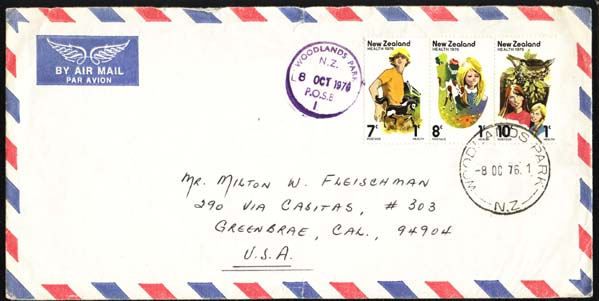 BY AIR MAIL
PAR AVION
WOODLANDS PARK
N.Z.
8 OCT 1976
P.O.S.B
1
New Zealand
HEALTH 1976
7c 1c
POSTAGE HEALTH
New Zealand
HEALTH 1976
8c 1c
POSTAGE HEALTH
New Zealand
HEALTH 1976
10c 1c
POSTAGE HEALTH
WOODLANDS PARK
-8 OC 76. 1
N.Z.
MR. MILTON W. FLEISCHMAN
290 VIA CASITAS, # 303
GREENBRAE, CAL., 94904
U.S.A.